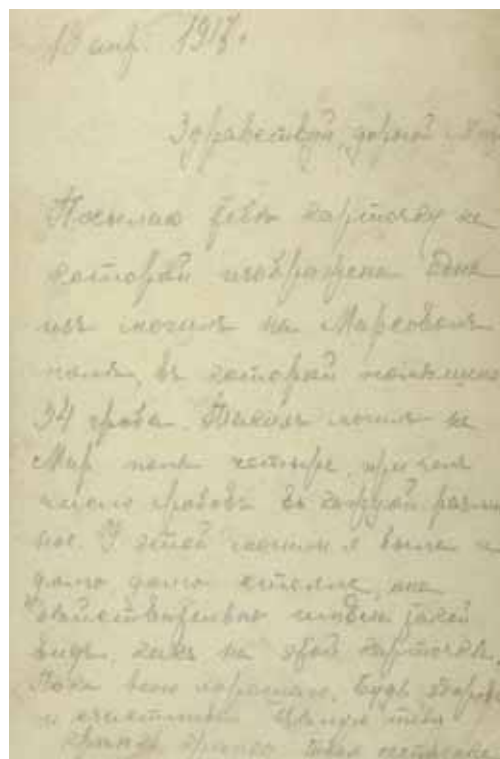 18 апр. 1917 г.
Здравствуй, дорогой
Посылаю тебе карточку на
которой изображена одна
изъ могилъ на Марсовомъ
поле, въ которой помещено
34 гроба. Такихъ могилъ на
Мар. поле четыре, причемъ
число гробовъ въ каждой
ное. У этой могилы я былъ и
долго долго стоялъ, она
действительно имеетъ такой
видъ, какъ на этой карточке.
Пока всего хорошаго. Будь здоровъ
и счастливъ. Целую тебя
крепко крепко твоя